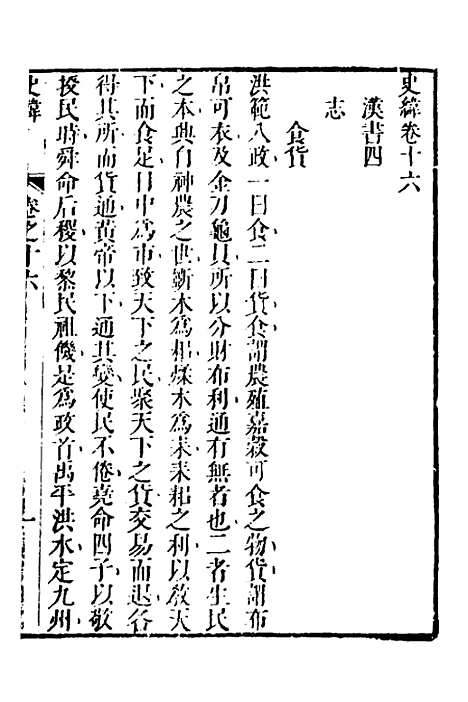 史緯卷十六
漢書四
志
食貨
洪範八政一曰食二曰貨食謂農殖嘉穀可食之物貨謂布
帛可衣及金刀龜貝所以分財布利通有無者也二者生民
之本興自神農之世斵木爲耜煣木爲耒耒耜之利以敎天
下而食足日中爲市致天下之民聚天下之貨交易而退各
得其所而貨通黃帝以下通其變使民不倦堯命四子以敬
授民時舜命后稷以黎民祖饑是爲政首禹平洪水定九州
史緯 卷之十六